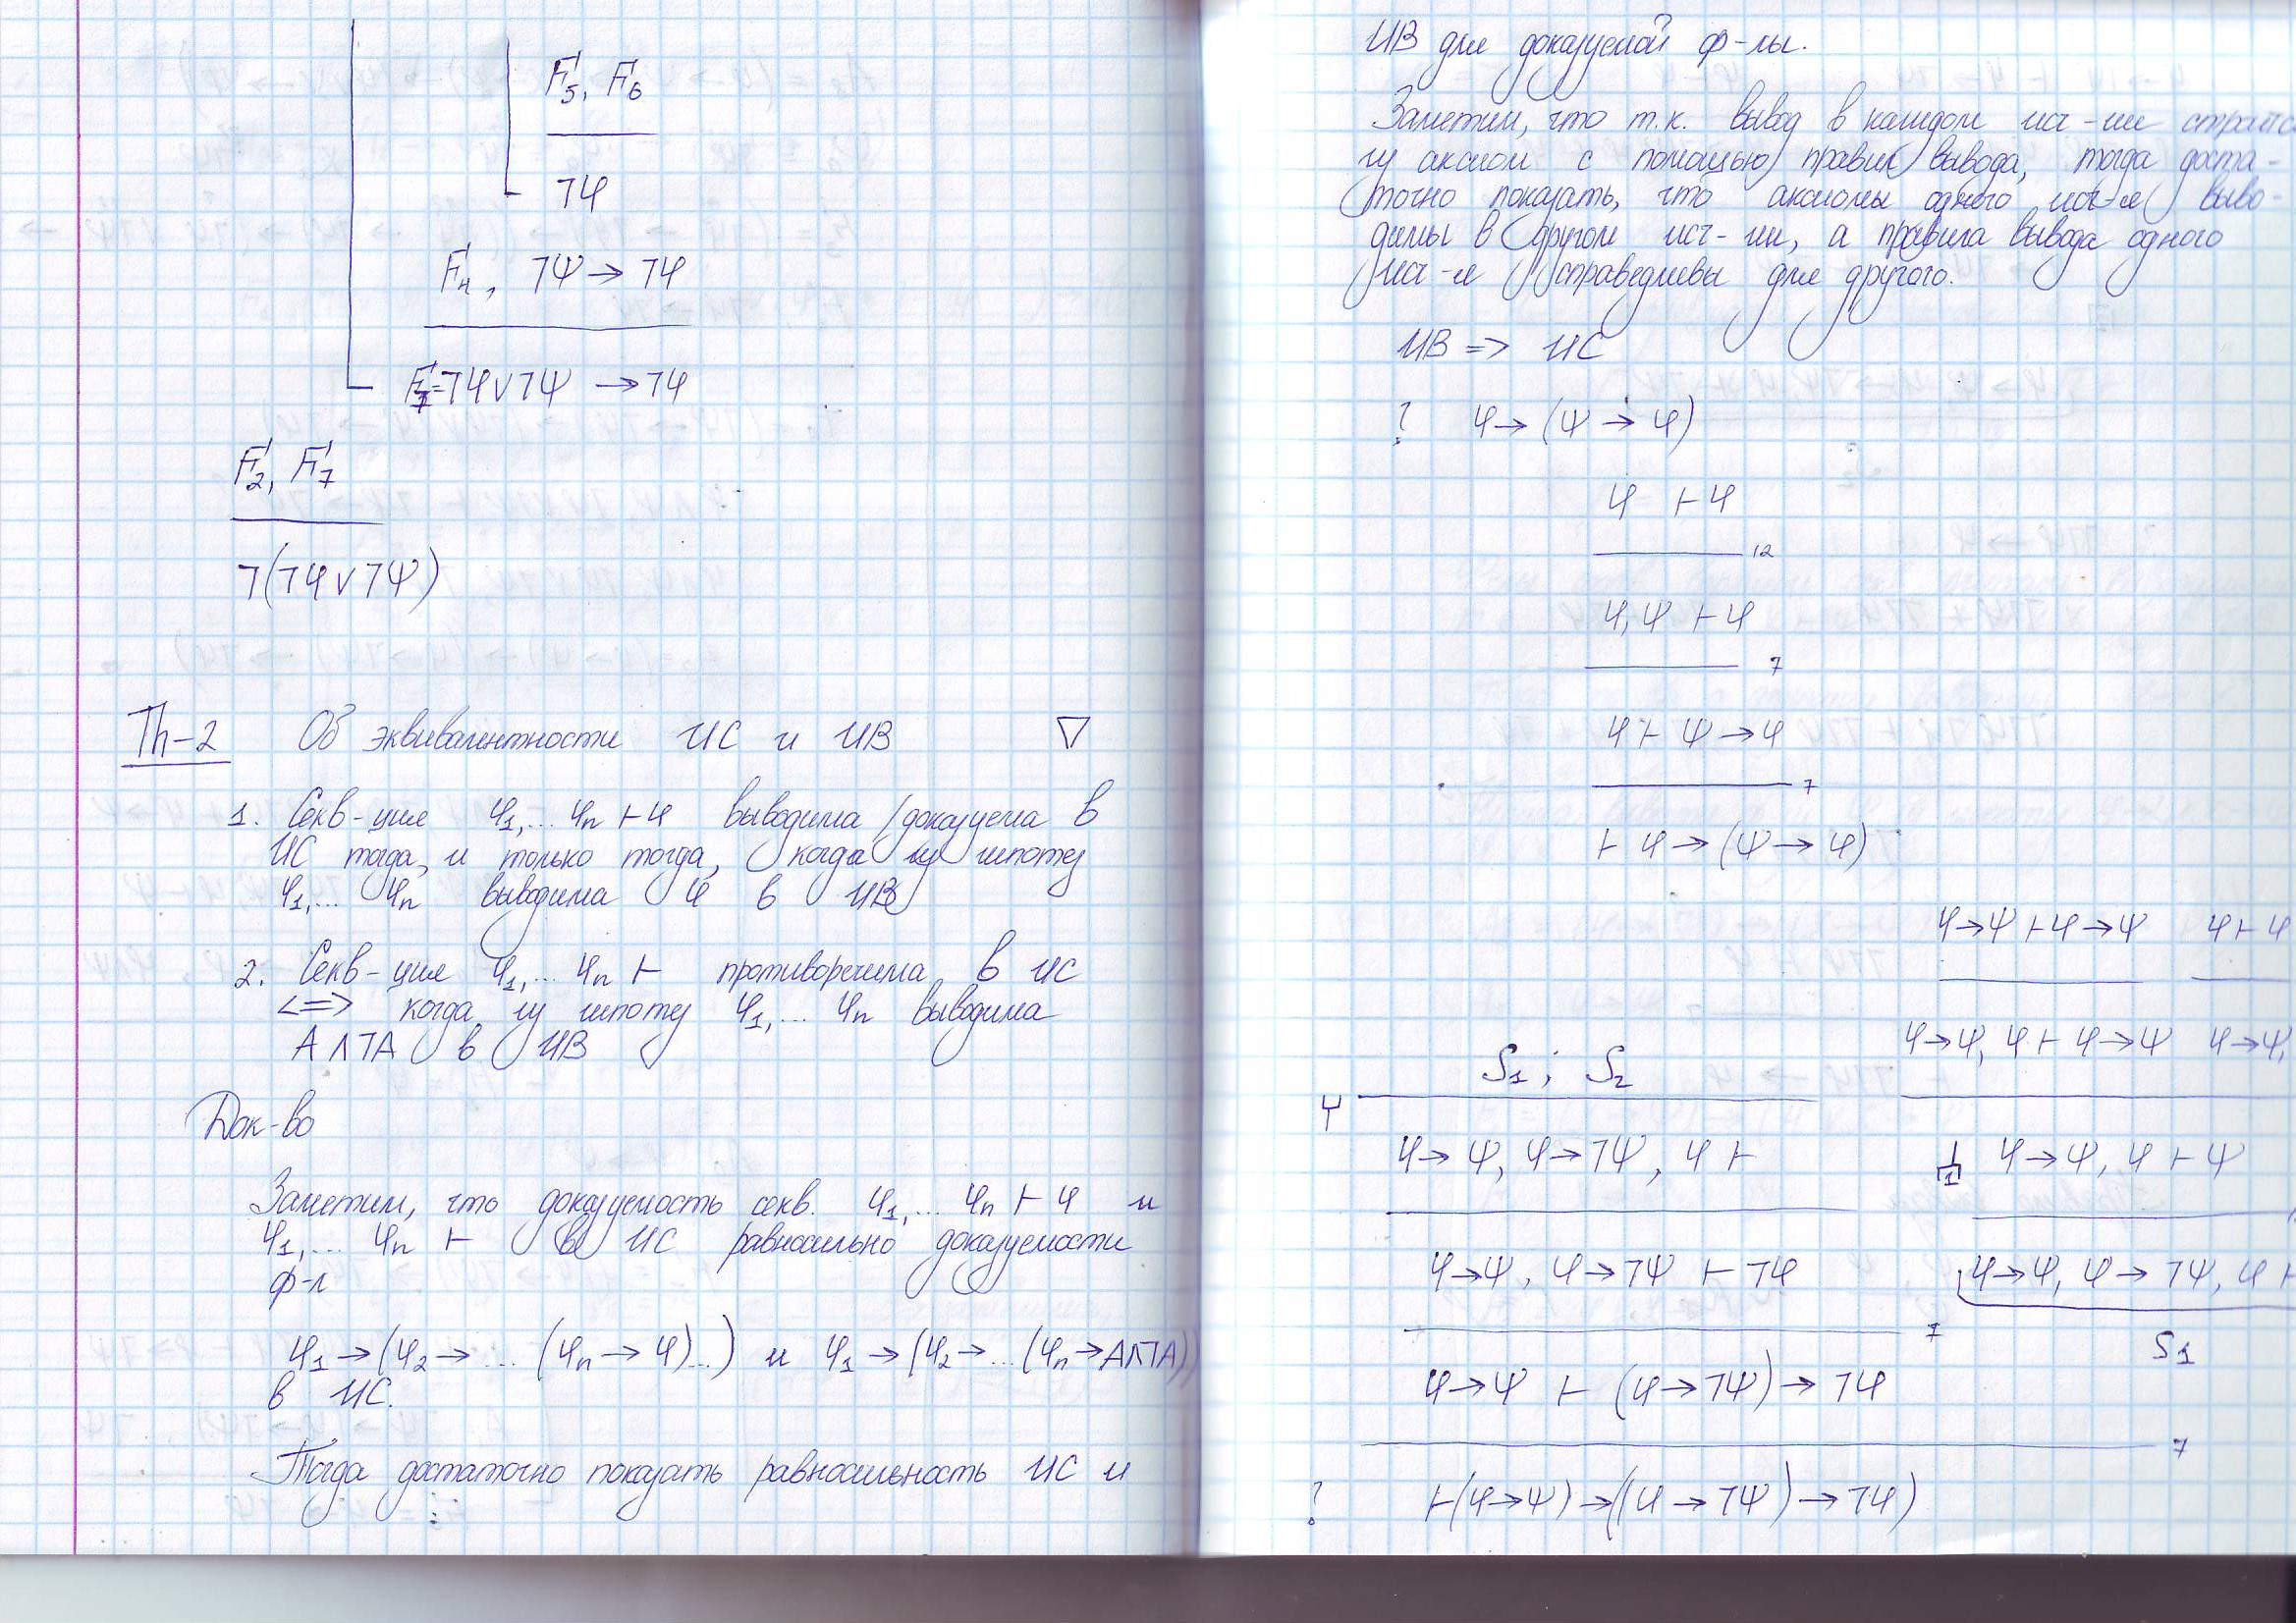 F₅, F₆
⅂φ
F₄, ⅂ψ → ⅂φ
F₇=⅂φ∨⅂ψ → ⅂φ
F₂, F₇
⅂(⅂φ∨⅂ψ)
Th-2 Об эквивалентности ИС и ИВ ▽
1. Секв-ция φ₁,... φₙ ⊢ φ выводима (доказуема в
ИС тогда и только тогда, когда из гипотез
φ₁,... φₙ выводима φ в ИВ
2. Секв-ция φ₁,... φₙ ⊢ противоречива в ИС
<=> когда из гипотез φ₁,... φₙ выводима
A∧⅂A в ИВ
Док-во
Заметим, что доказуемость секв. φ₁,... φₙ ⊢ φ и
φ₁,... φₙ ⊢ в ИС равносильно доказуемости
ф-л
φ₁ → (φ₂ → ... (φₙ → φ)...) и φ₁ → (φ₂ → ... (φₙ → A∧⅂A))
в ИС.
Тогда достаточно показать равносильность ИС и
ИВ для доказуемой ф-лы.
Заметим, что т.к. вывод в каждом исч-ии
из аксиом с помощью правил вывода, тогда доста-
точно показать, что аксиомы одного исч-я выво-
димы в другом исч-ии, а правила вывода одного
исч-я справедливы для другого.
ИВ => ИС
? φ → (ψ → φ)
φ ⊢ φ
12
φ, ψ ⊢ φ
7
φ ⊢ ψ → φ
7
⊢ φ → (ψ → φ)
φ→ψ ⊢ φ→ψ φ ⊢ φ
φ→ψ, φ ⊢ φ→ψ φ→ψ,
1 φ→ψ, φ ⊢ ψ
φ→ψ, φ→⅂ψ, φ ⊢
S₁
S₁; S₂
φ→ψ, φ→⅂ψ, φ ⊢
φ→ψ, φ→⅂ψ ⊢ ⅂φ
7
φ→ψ ⊢ (φ→⅂ψ) → ⅂φ
7
? ⊢ (φ→ψ) → ((φ→⅂ψ) → ⅂φ)